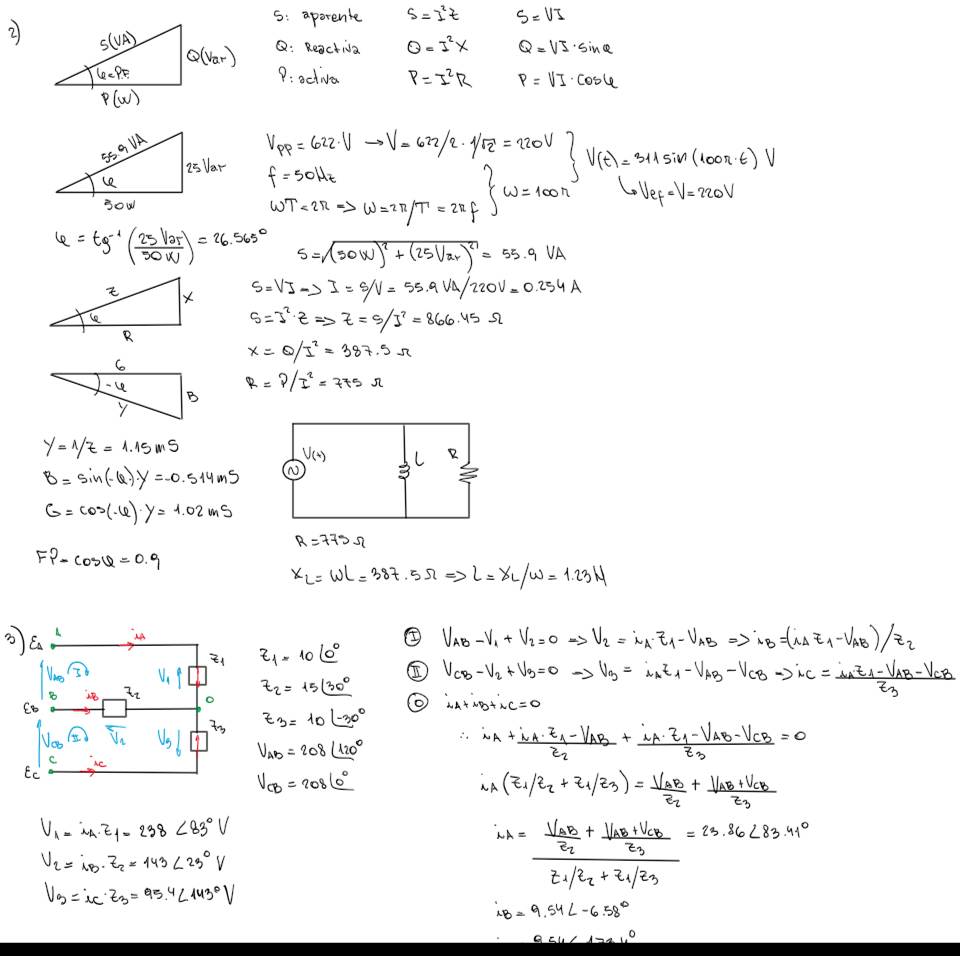 2)
S: aparente S=I²Z S=VI
Q: Reactiva Q=I²X Q=VI·sinφ
P: activa P=I²R P=VI·cosφ
S(VA)
Q(Var)
φ=P.F.
P(W)
55.9 VA
25 Var
φ
50W
Vpp=622·V → V=622/2·1/√2=220V
f=50Hz
ωT=2π => ω=2π/T=2πf
ω=100π
V(t)=311sin(100π·t) V
↳ Vef=V=220V
φ=tg⁻¹(25 Var/50 W)=26.565°
S=√(50W)²+(25Var)²=55.9 VA
S=VI => I=S/V=55.9 VA/220V=0.254 A
S=I²·Z => Z=S/I²=866.45 Ω
X=Q/I²=387.5 Ω
R=P/I²=775 Ω
Z
X
φ
R
G
-φ
B
Y
Y=1/Z=1.15mS
B=sin(-φ)·Y=-0.514mS
G=cos(-φ)·Y=1.02mS
FP=cosφ=0.9
V(t)
L
R
R=775Ω
XL=ωL=387.5Ω => L=XL/ω=1.23H
3)
EA A iA
VAB I V1 Z1
EB B iB Z2 O
VCB II V2 V3 Z3
EC C iC
Z1=10∠0°
Z2=15∠30°
Z3=10∠-30°
VAB=208∠120°
VCB=208∠0°
I VAB-V1+V2=0 => V2=iA·Z1-VAB => iB=(iA Z1-VAB)/Z2
II VCB-V2+V3=0 => V3=iAZ1-VAB-VCB => iC=(iAZ1-VAB-VCB)/Z3
O iA+iB+iC=0
∴ iA+(iA·Z1-VAB)/Z2+(iA·Z1-VAB-VCB)/Z3=0
iA(Z1/Z2+Z1/Z3)=VAB/Z2+(VAB+VCB)/Z3
iA=(VAB/Z2+(VAB+VCB)/Z3)/(Z1/Z2+Z1/Z3)=23.86∠83.41°
iB=9.54∠-6.58°
V1=iA·Z1=238∠83° V
V2=iB·Z2=143∠23° V
V3=iC·Z3=95.4∠143° V